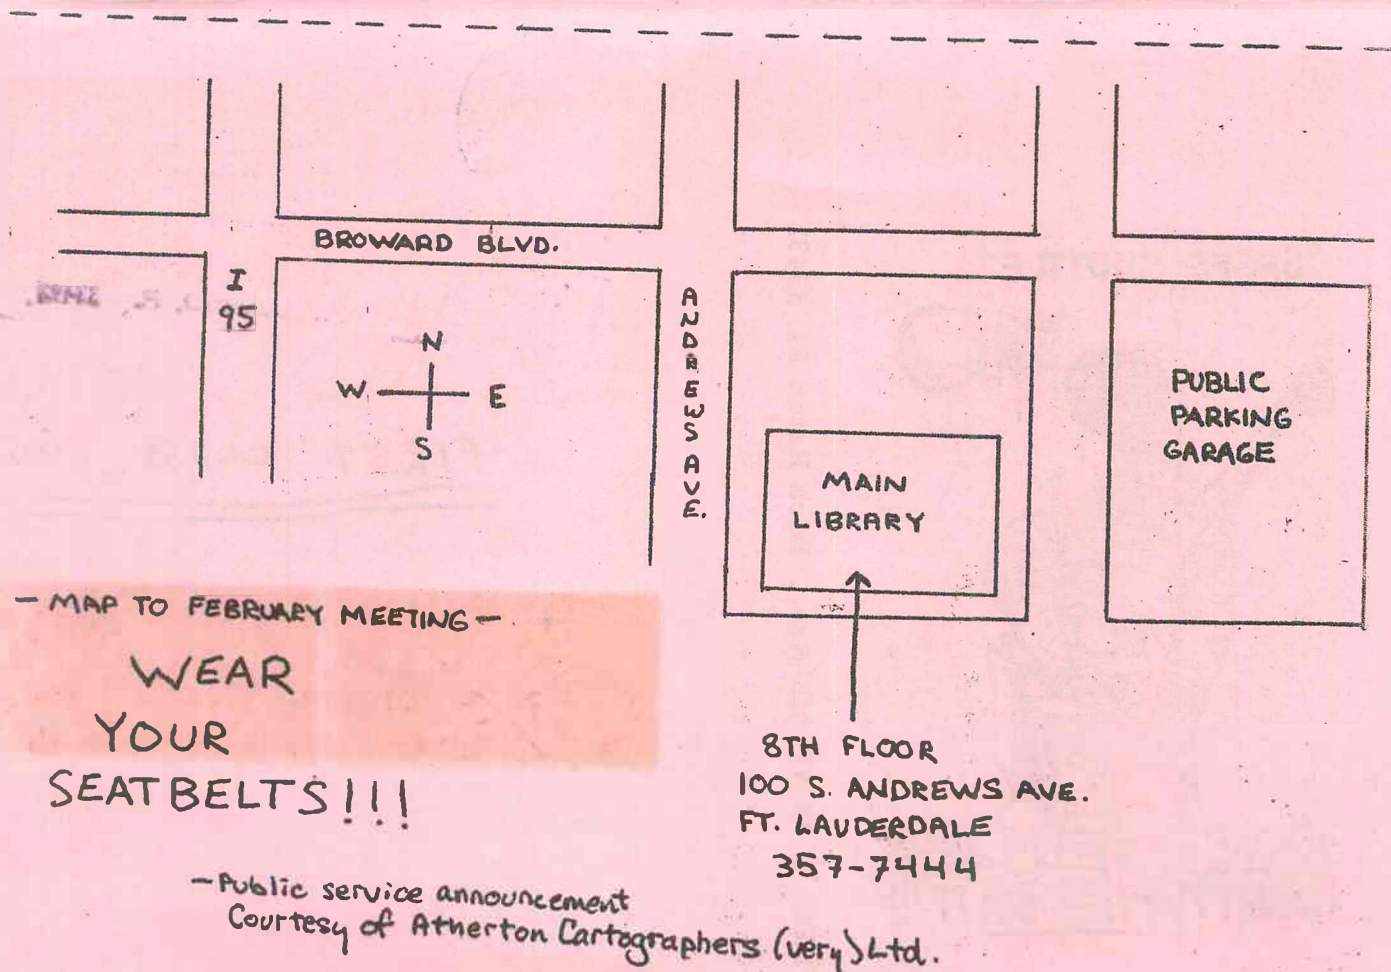 BROWARD BLVD.
I
95
N
W E
S
ANDREWS AVE.
MAIN
LIBRARY
PUBLIC
PARKING
GARAGE
- MAP TO FEBRUARY MEETING -
WEAR
YOUR
SEATBELTS!!!
8TH FLOOR
100 S. ANDREWS AVE.
FT. LAUDERDALE
357-7444
- Public service announcement
Courtesy of Atherton Cartographers (very) Ltd.